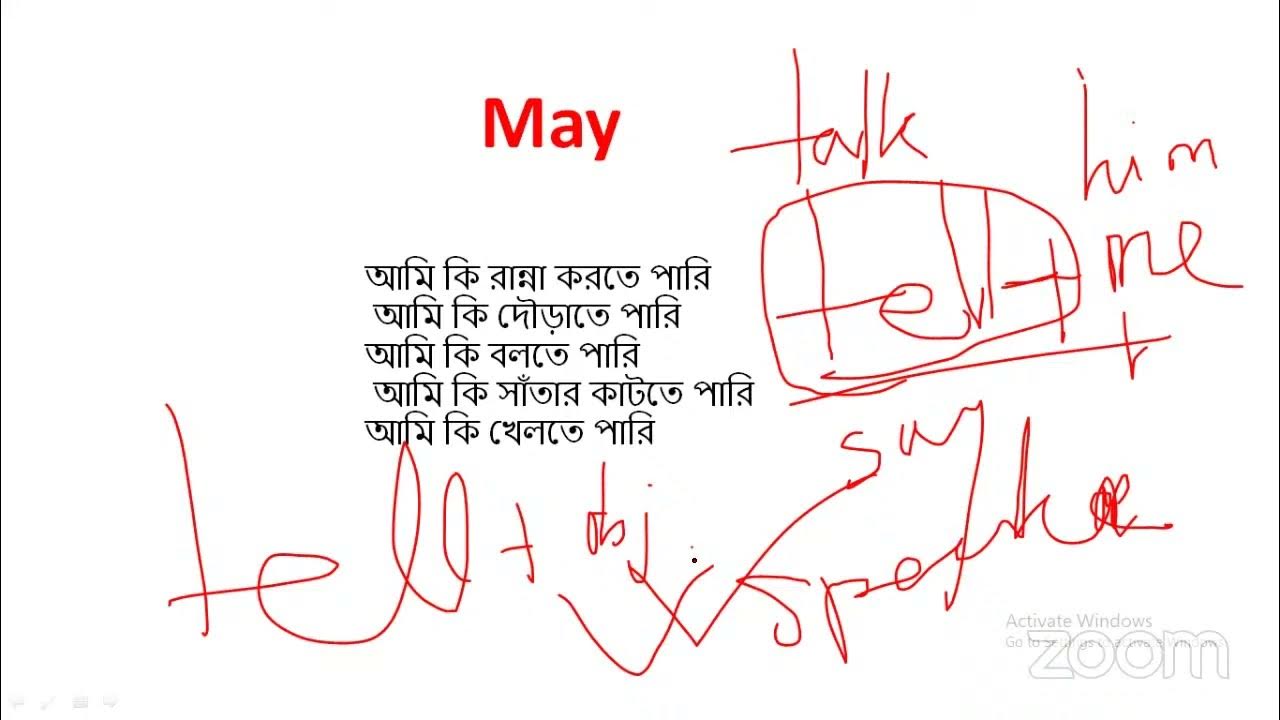 May
talk
him
tell + me
+
আমি কি রান্না করতে পারি
আমি কি দৌড়াতে পারি
আমি কি বলতে পারি
আমি কি সাঁতার কাটতে পারি
আমি কি খেলতে পারি
say
tell + obj
Activate Windows
Go to Settings to activate Windows.
zoom